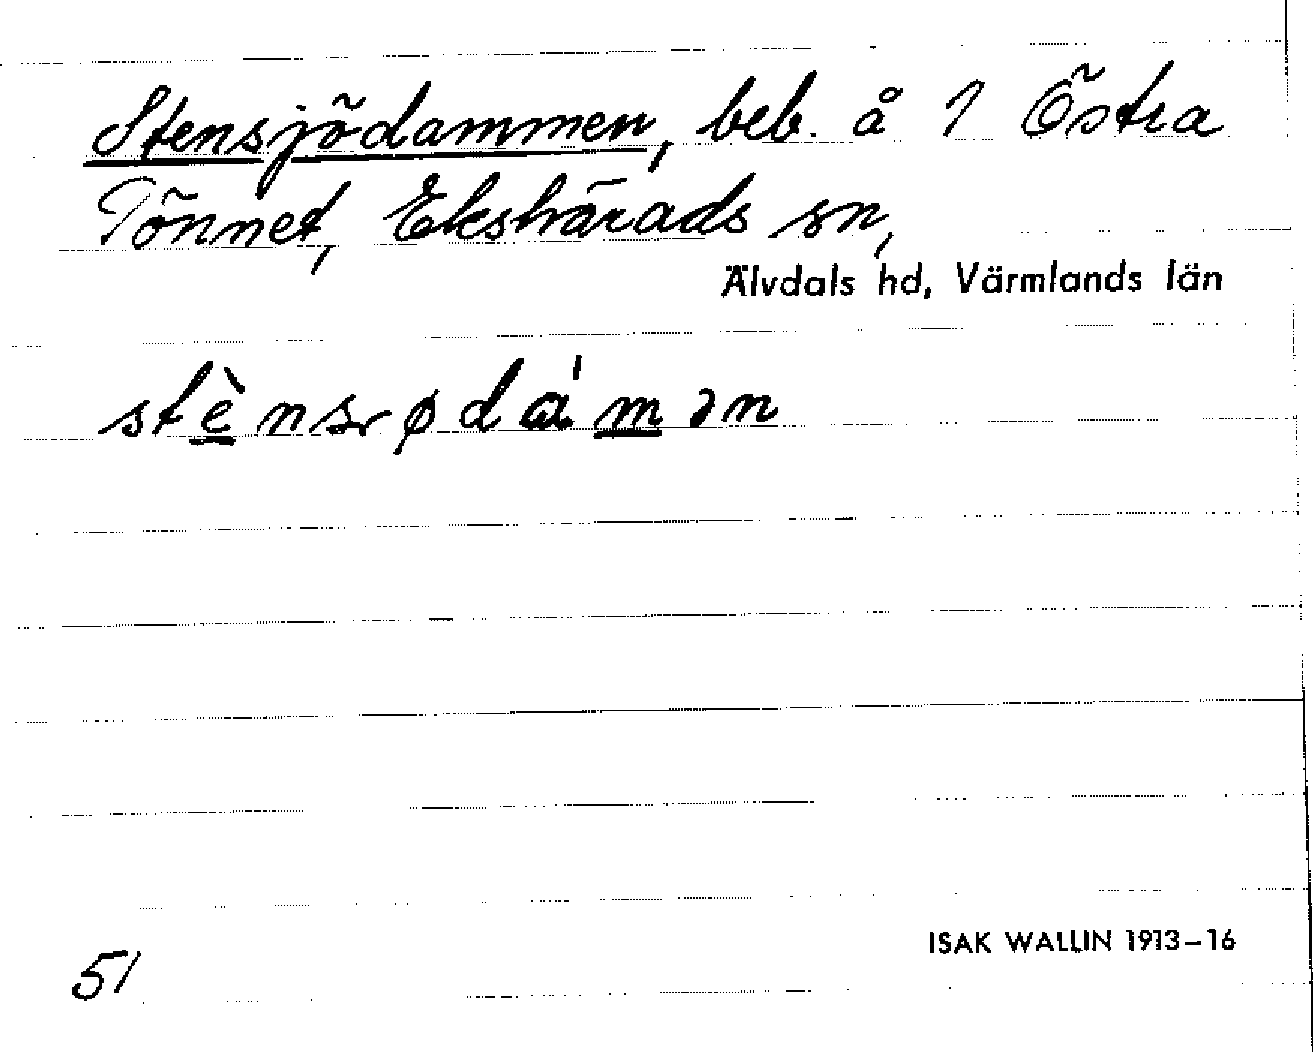 Stensjödammen, beb. å 1 Östra
Tönnet, Ekshärads sn,
Älvdals hd, Värmlands län
51
ISAK WALLIN 1913–16